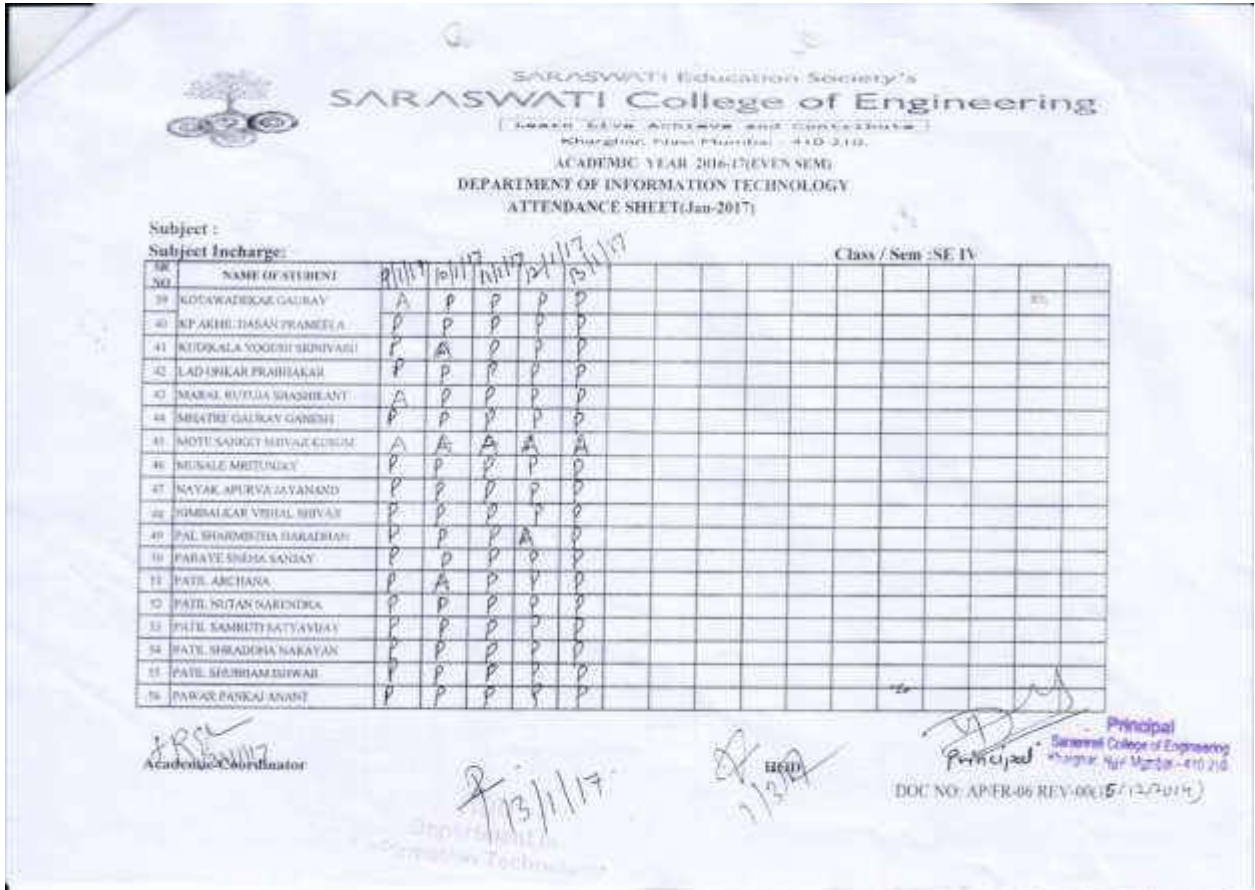 SARASWATI Education Society's
SARASWATI College of Engineering
Learn Live Achieve and Contribute
Kharghar, Navi Mumbai - 410 210.
ACADEMIC YEAR 2016-17(EVEN SEM)
DEPARTMENT OF INFORMATION TECHNOLOGY
ATTENDANCE SHEET(Jan-2017)
Subject :
Subject Incharge: Class / Sem :SE IV
SR NO NAME OF STUDENT 9/1/17 10/1/17 11/1/17 12/1/17 13/1/17
39 KOTAWADEKAR GAURAV A P P P P
40 KP AKHIL DASAN PRAMEELA P P P P P
41 KUDIKALA YOGESH SRINIVASU P A P P P
42 LAD OMKAR PRABHAKAR P P P P P
43 MARAL RUTUJA SHASHIKANT A P P P P
44 MHATRE GAURAV GANESH P P P P P
45 MOTE SANKET SHIVAJI KUSUM A A A A A
46 MUSALE MRITUNJAY P P P P P
47 NAYAK APURVA JAYANAND P P P P P
48 NIMBALKAR VISHAL SHIVAJI P P P P P
49 PAL SHARMISTHA HARADHAN P P P A P
50 PARAYE SNEHA SANJAY P P P P P
51 PATIL ARCHANA P A P P P
52 PATIL NUTAN NARENDRA P P P P P
53 PATIL SAMRUTI SATYAVIJAY P P P P P
54 PATIL SHRADDHA NARAYAN P P P P P
55 PATIL SHUBHAM ISHWAR P P P P P
56 PAWAR PANKAJ ANANT P P P P P
Academic Coordinator
13/1/17
HOD
Principal
Principal
Saraswati College of Engineering
Kharghar, Navi Mumbai - 410 210
DOC NO: AP/FR-06 REV-00(15/12/2014)
Department of
Information Technology